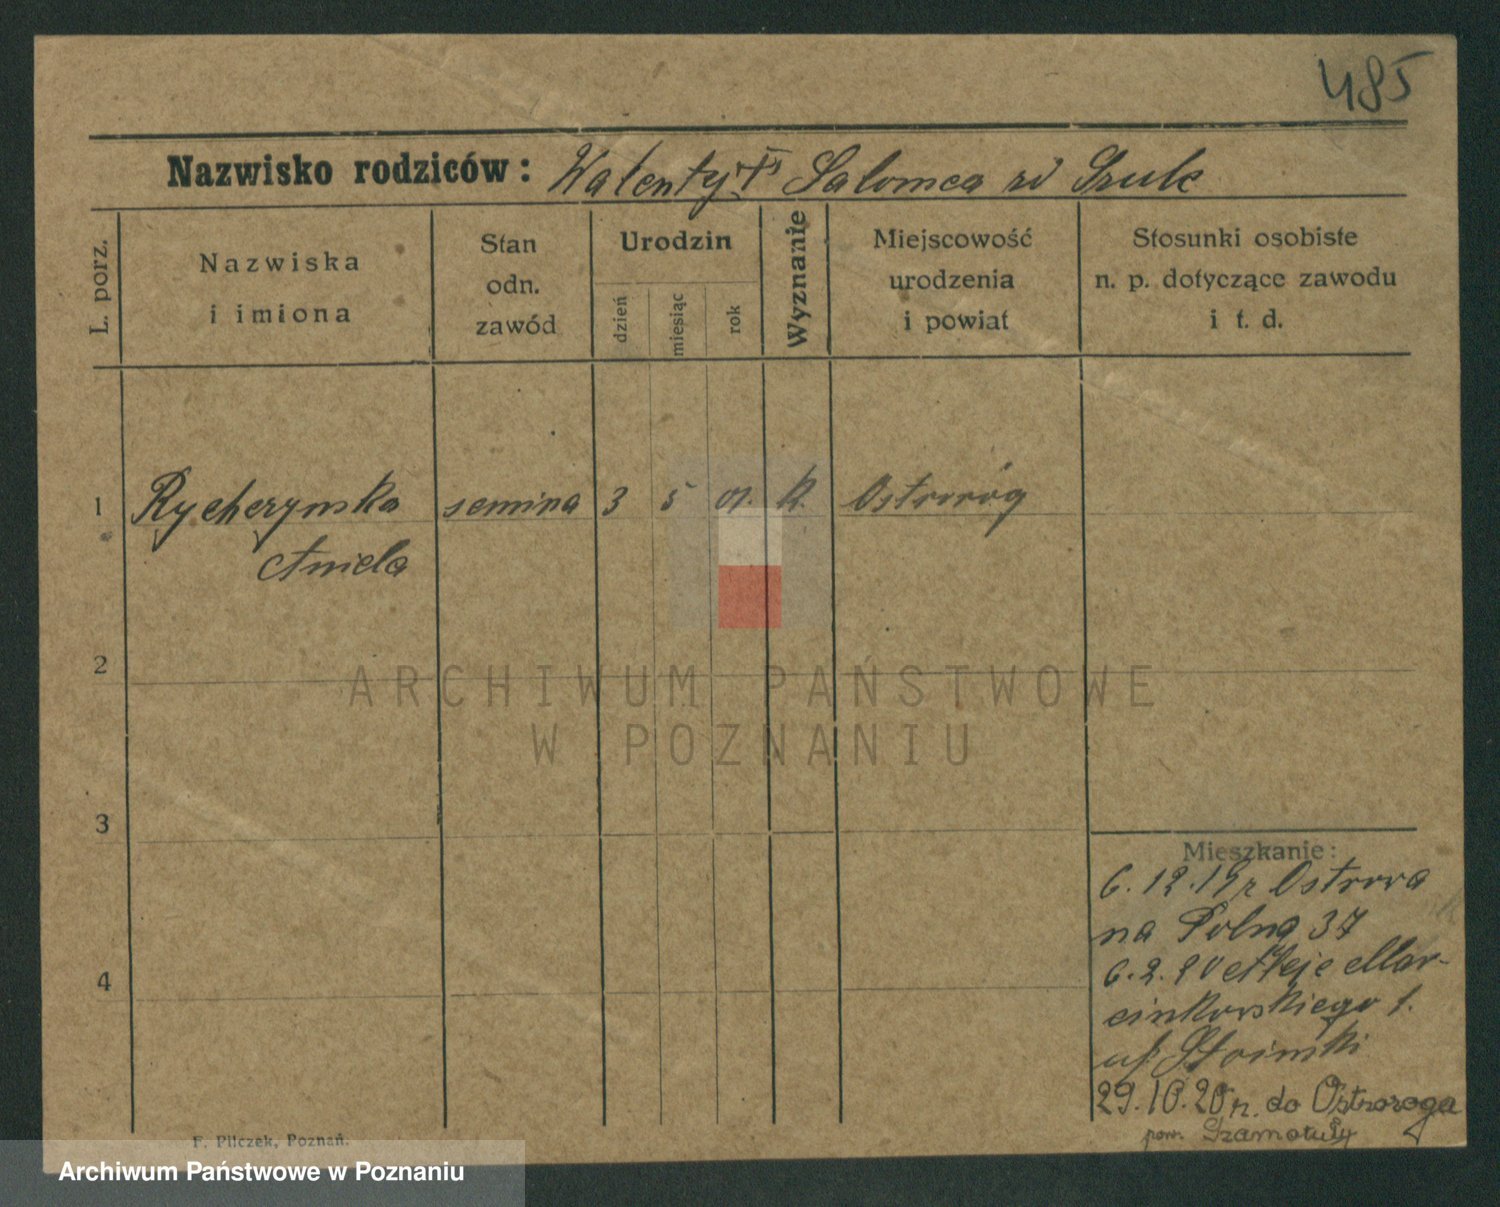 485
Nazwisko rodziców: Walenty † Salomea zd Szulc
L. porz.
Nazwiska
i imiona
Stan
odn.
zawód
Urodzin
dzień
miesiąc
rok
Wyznanie
Miejscowość
urodzenia
i powiat
Stosunki osobiste
n. p. dotyczące zawodu
i t. d.
1 Rycherzynska semina 3 5 01. k. Ostroróg
Aniela
2
3
4
Mieszkanie:
6.12.19 r Ostrora
na Polna 37
6.2.20 Aleje Mar-
cinkowskiego 1.
29.10.20 r. do Ostroroga
pow. Szamotuły
F. Pilczek, Poznań.
ARCHIWUM PAŃSTWOWE
W POZNANIU
Archiwum Państwowe w Poznaniu